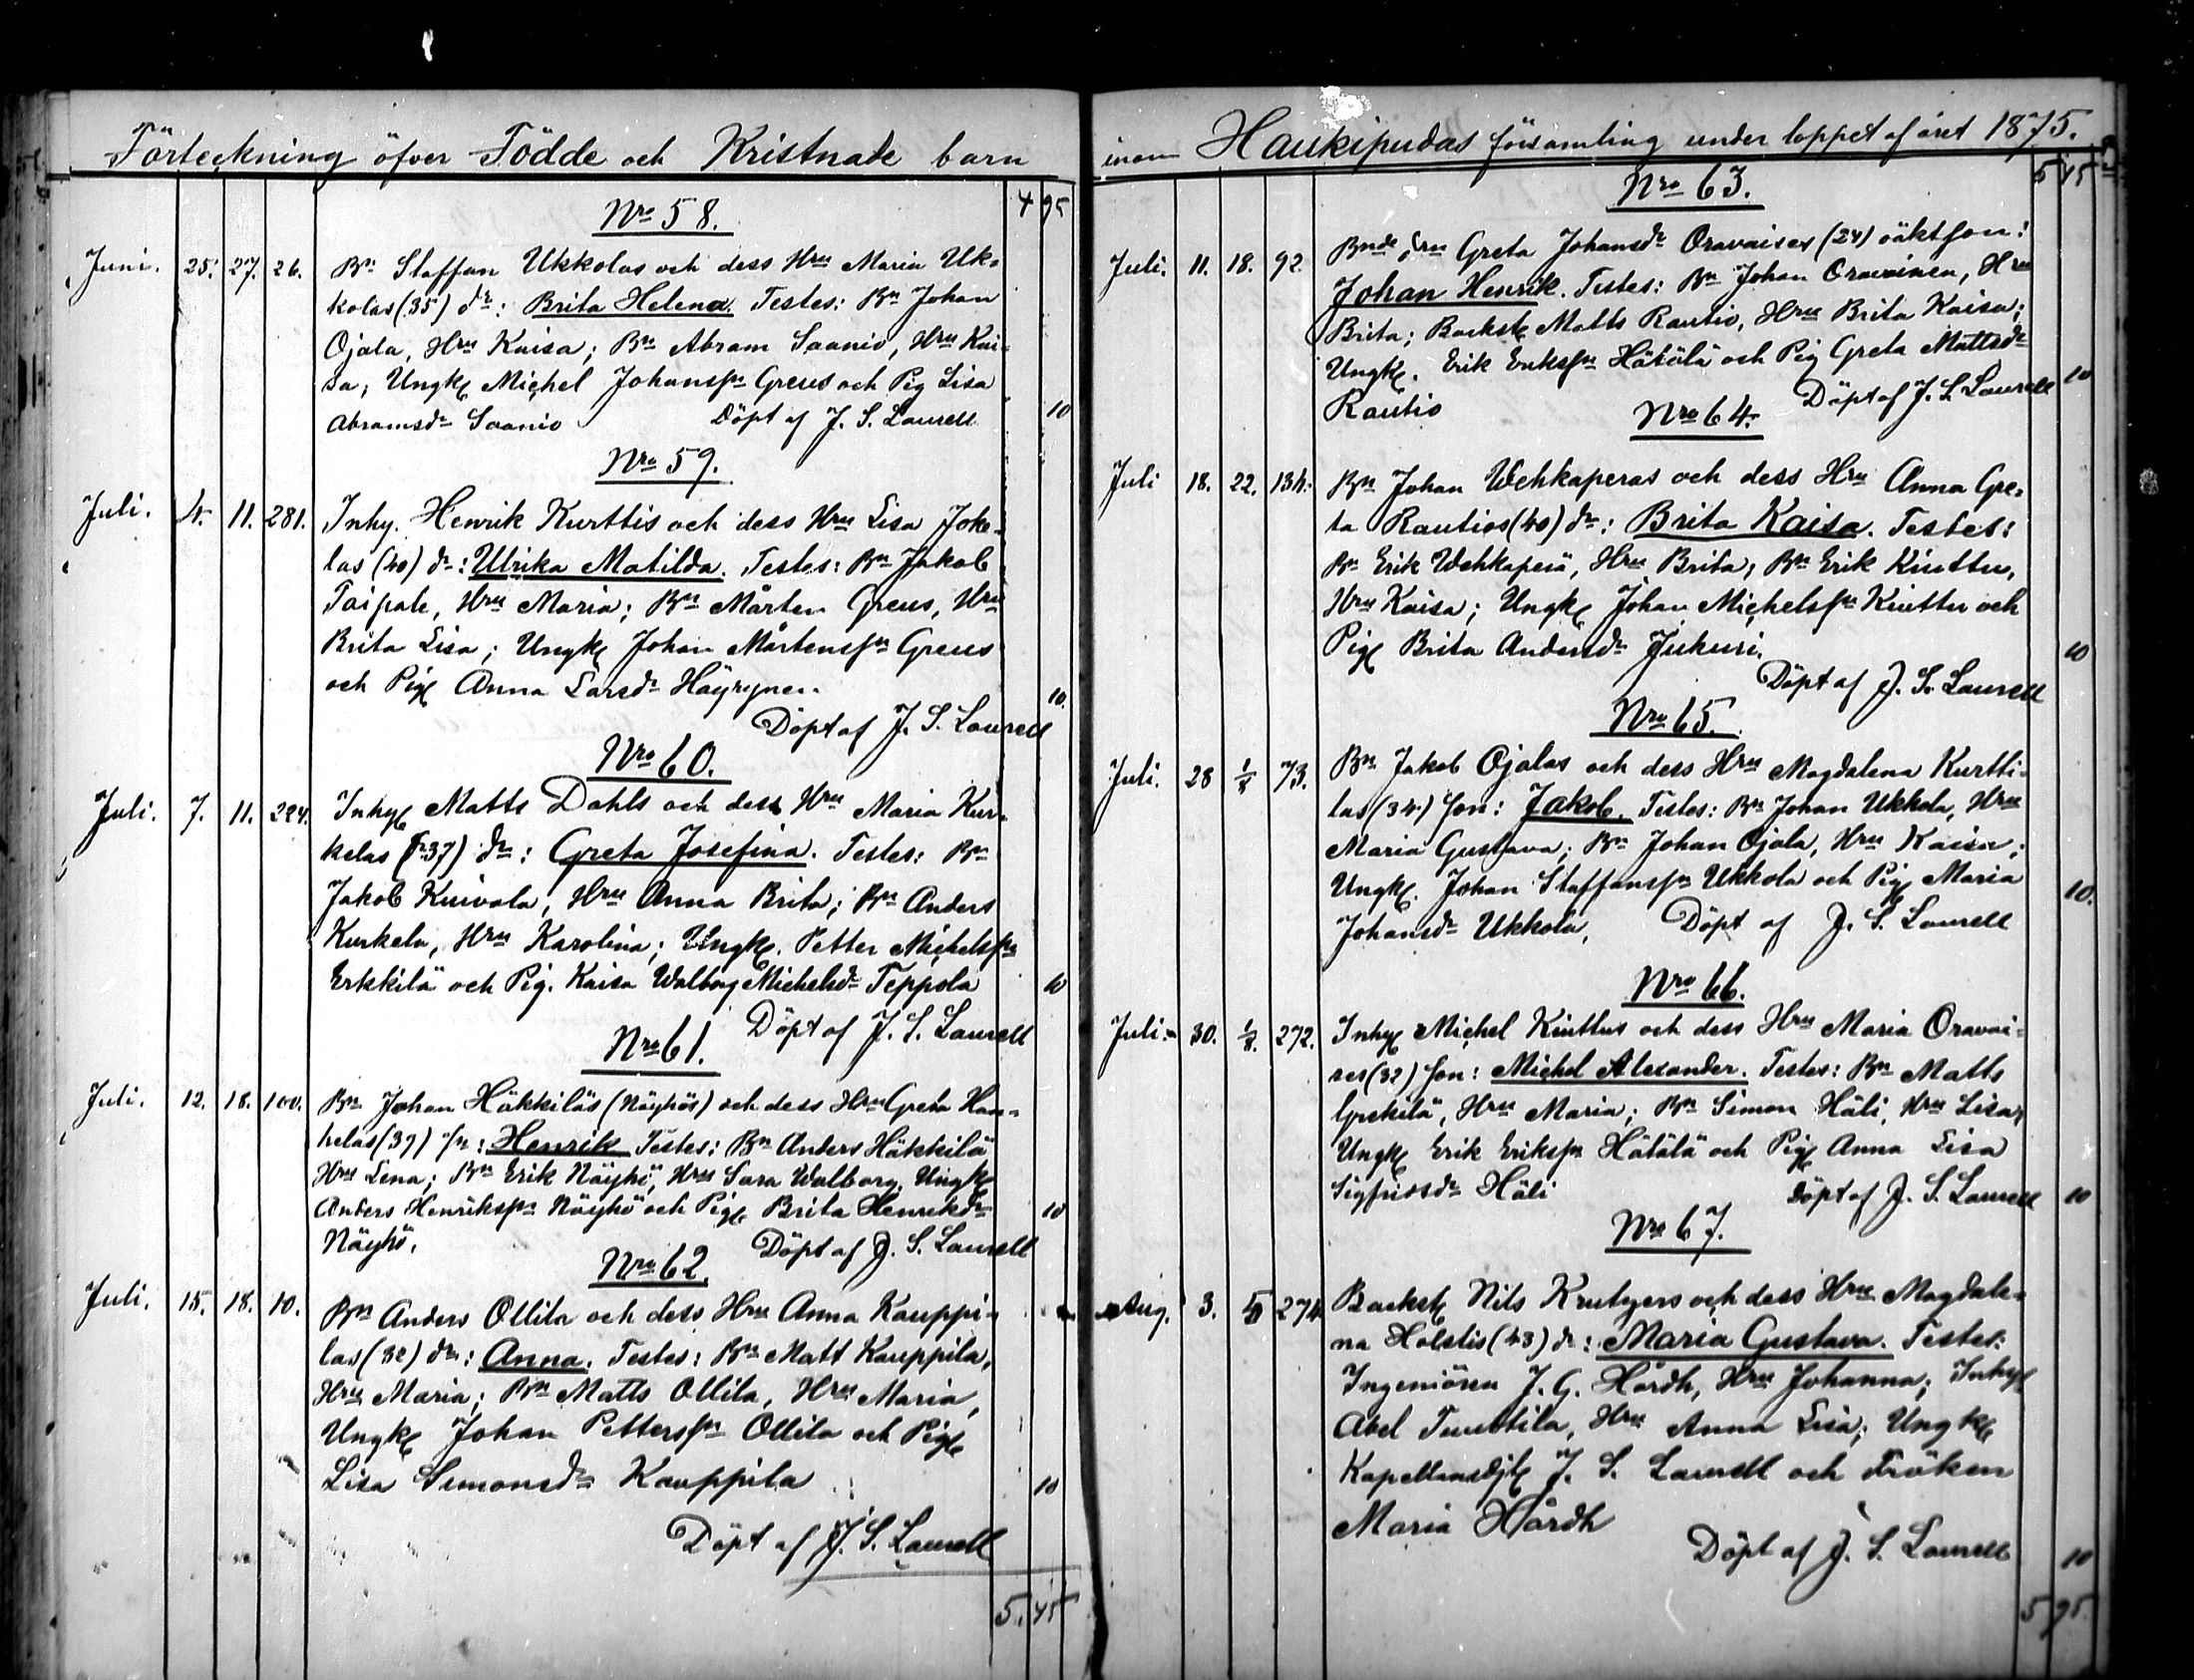 Förteckning öfver Födde och Kristnade barn
4 95
Nro 58.
Juni. 25. 27. 26. Bn Staffan Ukkolas och dess Hru Maria Uk-
kolas (35) dr: Brita Helena. Testes: Bn Johan
Ojala, Hru Kaisa; Bn Abram Saanio, Hru Kai-
sa, Ungk Michel Johansn Greus och Pig Lisa
Abramsdr Saanio Döpt af J. S. Laurell 10
Nro 59.
Juli. 4. 11. 281. Inhy. Henrik Kurttis och dess Hru Lisa Joke-
las (40) dr: Ulrika Matilda. Testes: Bn Jakob
Taipale, Hru Maria; Bn Mårten Greus, Hru
Brita Lisa; Ungk Johan Mårtensn Greus
och Pig Anna Larsdr Häyrynen. 10.
Döpt af J. S. Laurell
Nro 60.
Juli. 7. 11. 224. Inhy Matts Dahls och dess Hru Maria Kur-
kelas (37) dr: Greta Josefina. Testes: Bn
Jakob Kuivala, Hru Anna Brita; Bn Anders
Kurkela, Hru Karolina; Ungk. Petter Michelsn
Erkkilä och Pig. Kaisa Walborg Michelsdr Teppola 10
Döpt af J. S. Laurell
Nro 61.
Juli. 12. 18. 100. Bn Johan Häkkiläs (Näyhös) och dess Hru Greta Han-
helas (37) sn: Henrik Testes: Bn Anders Häkkilä
Hru Lena; Bn Erik Näyhö, Hru Sara Walborg, Ungk
Anders Henriksn Näyhö och Pig Brita Henriksdr 10
Näyhö. Döpt af J. S. Laurell
Nro 62.
Juli. 15. 18. 10. Bn Anders Ollila och dess Hru Anna Kauppi-
las (32) dr: Anna. Testes: Bn Matt Kauppila,
Hru Maria; Bn Matts Ollila, Hru Maria,
Ungk Johan Pettersn Ollila och Pig
Lisa Simonsdr Kauppila 10
Döpt af J. S. Laurell
5. 45
inom Haukipudas församling under loppet af året 1875.
5 45
Nro 63.
Juli. 11. 18. 92. Bnde Greta Johansdr Oravaises (24) oäkt son:
Johan Henrik. Testes: Bn Johan Oravainen, Hru
Brita; Backst Matts Rautio, Hru Brita Kaisa;
Ungk. Erik Eriksn Hätälä och Pig Greta Mattsdr 10
Rautio Döpt af J. S. Laurell
Nro 64.
Juli 18. 22. 134. Bn Johan Wehkaperas och dess Hru Anna Gre-
ta Rautios (40) dr: Brita Kaisa. Testes:
Bn Erik Wehkaperä, Hru Brita; Bn Erik Kinttu,
Hru Kaisa; Ungk Johan Michelsn Kinttu och
Pig Brita Andersdr Jukuri. 10
Döpt af J. S. Laurell
Nro 65.
Juli. 28 1/8 73. Bn Jakob Ojalas och dess Hru Magdalena Kurtti-
las (34) son: Jakob. Testes: Bn Johan Ukkola, Hru
Maria Gustava; Bn Johan Ojala, Hru Kaisa;
Ungk. Johan Staffansn Ukkola och Pig Maria 10.
Johansdr Ukkola. Döpt af J. S. Laurell
Nro 66.
Juli. 30. 1/8. 272. Inhy Michel Kinttus och dess Hru Maria Oravai-
ses (32) son: Michel Alexander. Testes: Bn Matts
Hru Maria; Bn Simon Häli, Hru Lisa,
Ungk Erik Eriksn Hätälä och Pig Anna Lisa
Sigfridsdr Häli Döpt af J. S. Laurell 10
Nro 67.
Aug. 3. 274 Backst Nils Krutgers och dess Hru Magdale-
na Holstis (43) dr: Maria Gustava. Testes:
Ingeniören J. G. Hårdh, Hru Johanna; Inhy
Abel Tuuttila, Hru Anna Lisa; Ungk
Kapellansdj J. S. Laurell och Fröken
Maria Hårdh
Döpt af J. S. Laurell 10
5 95.